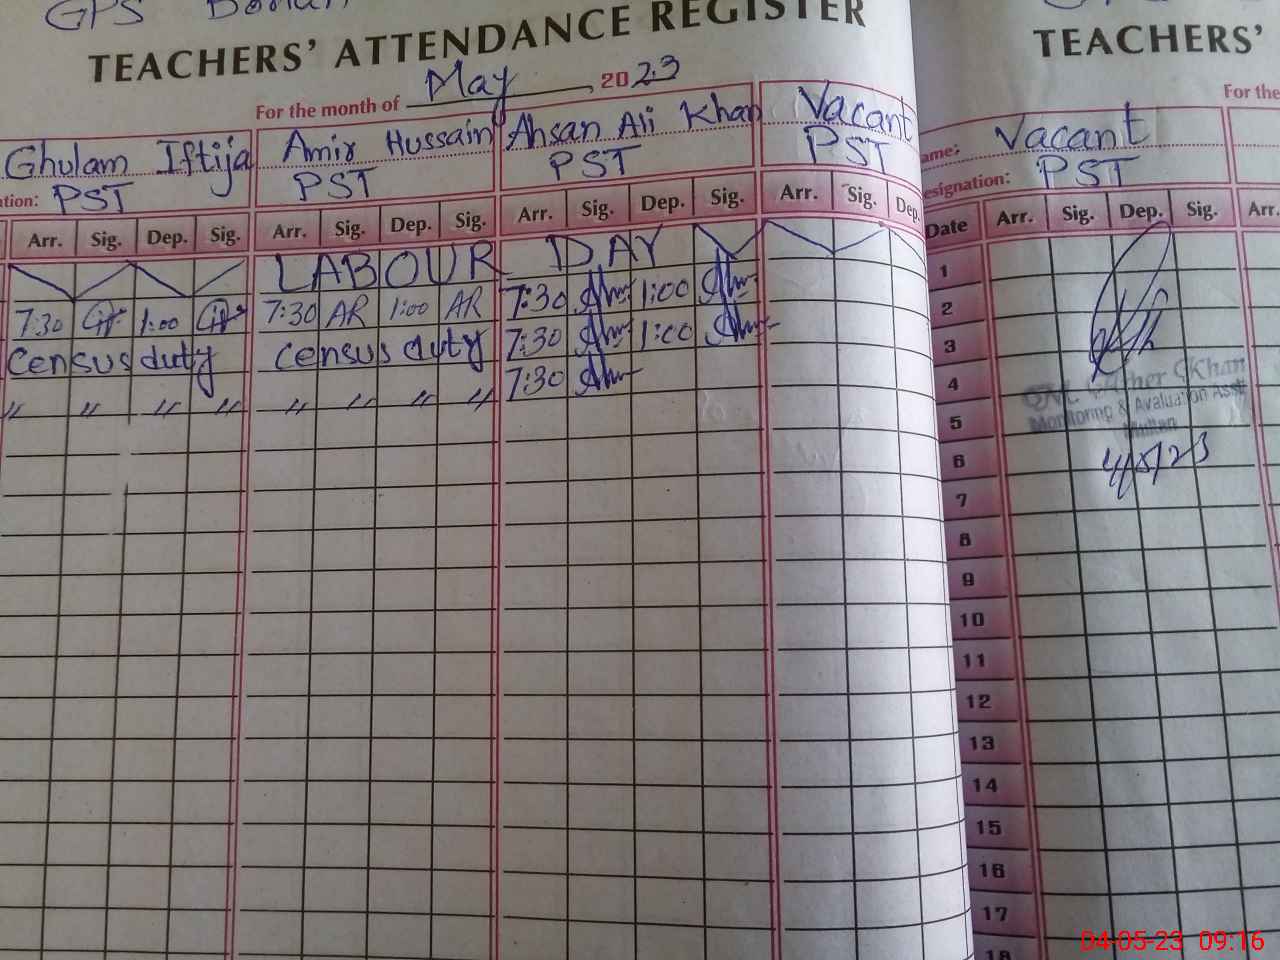 GPS
TEACHERS' ATTENDANCE REGISTER
For the month of May, 2023
Ghulam Iftija Amir Hussain Ahsan Ali Khan Vacant
tion: PST PST PST PST
Arr. Sig. Dep. Sig. Arr. Sig. Dep. Sig. Arr. Sig. Dep. Sig. Arr. Sig. Dep.
LABOUR DAY
7:30 1:00 7:30 AR 1:00 AR 7:30 1:00
Census duty Census duty 7:30 1:00
〃 〃 〃 〃 〃 〃 〃 〃 7:30
TEACHERS'
For the
ame: Vacant
esignation: PST
Date Arr. Sig. Dep. Sig. Arr.
1
2
3
4
Khan
5
Monitoring & Evaluation Asstt
Multan
6
4/5/23
7
8
9
10
11
12
13
14
15
16
17
18
04-05-23 09:16